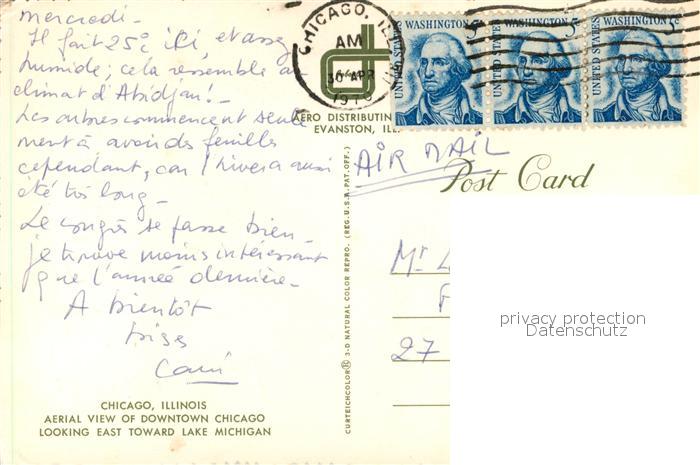 mercredi -
Il fait 25°c ici, et assez
humide; cela ressemble au
climat d'Abidjan! -
Les arbres commencent seule
ment à avoir des feuilles
cependant, car l'hiver a aussi
été très long -
Le congrès se passe bien -
je trouve moins intéressant
que l'année dernière -
A bientôt
bises
CHICAGO, ILLINOIS
AERIAL VIEW OF DOWNTOWN CHICAGO
LOOKING EAST TOWARD LAKE MICHIGAN
CHICAGO, ILL
AM
30 APR
UNITED STATES WASHINGTON 5c
UNITED STATES WASHINGTON 5c
UNITED STATES WASHINGTON 5c
AERO DISTRIBUTIN
EVANSTON, ILL.
AIR MAIL
Post Card
CURTEICHCOLOR® 3-D NATURAL COLOR REPRO. (REG. U.S.A. PAT. OFF.)
Mr
27
privacy protection
Datenschutz